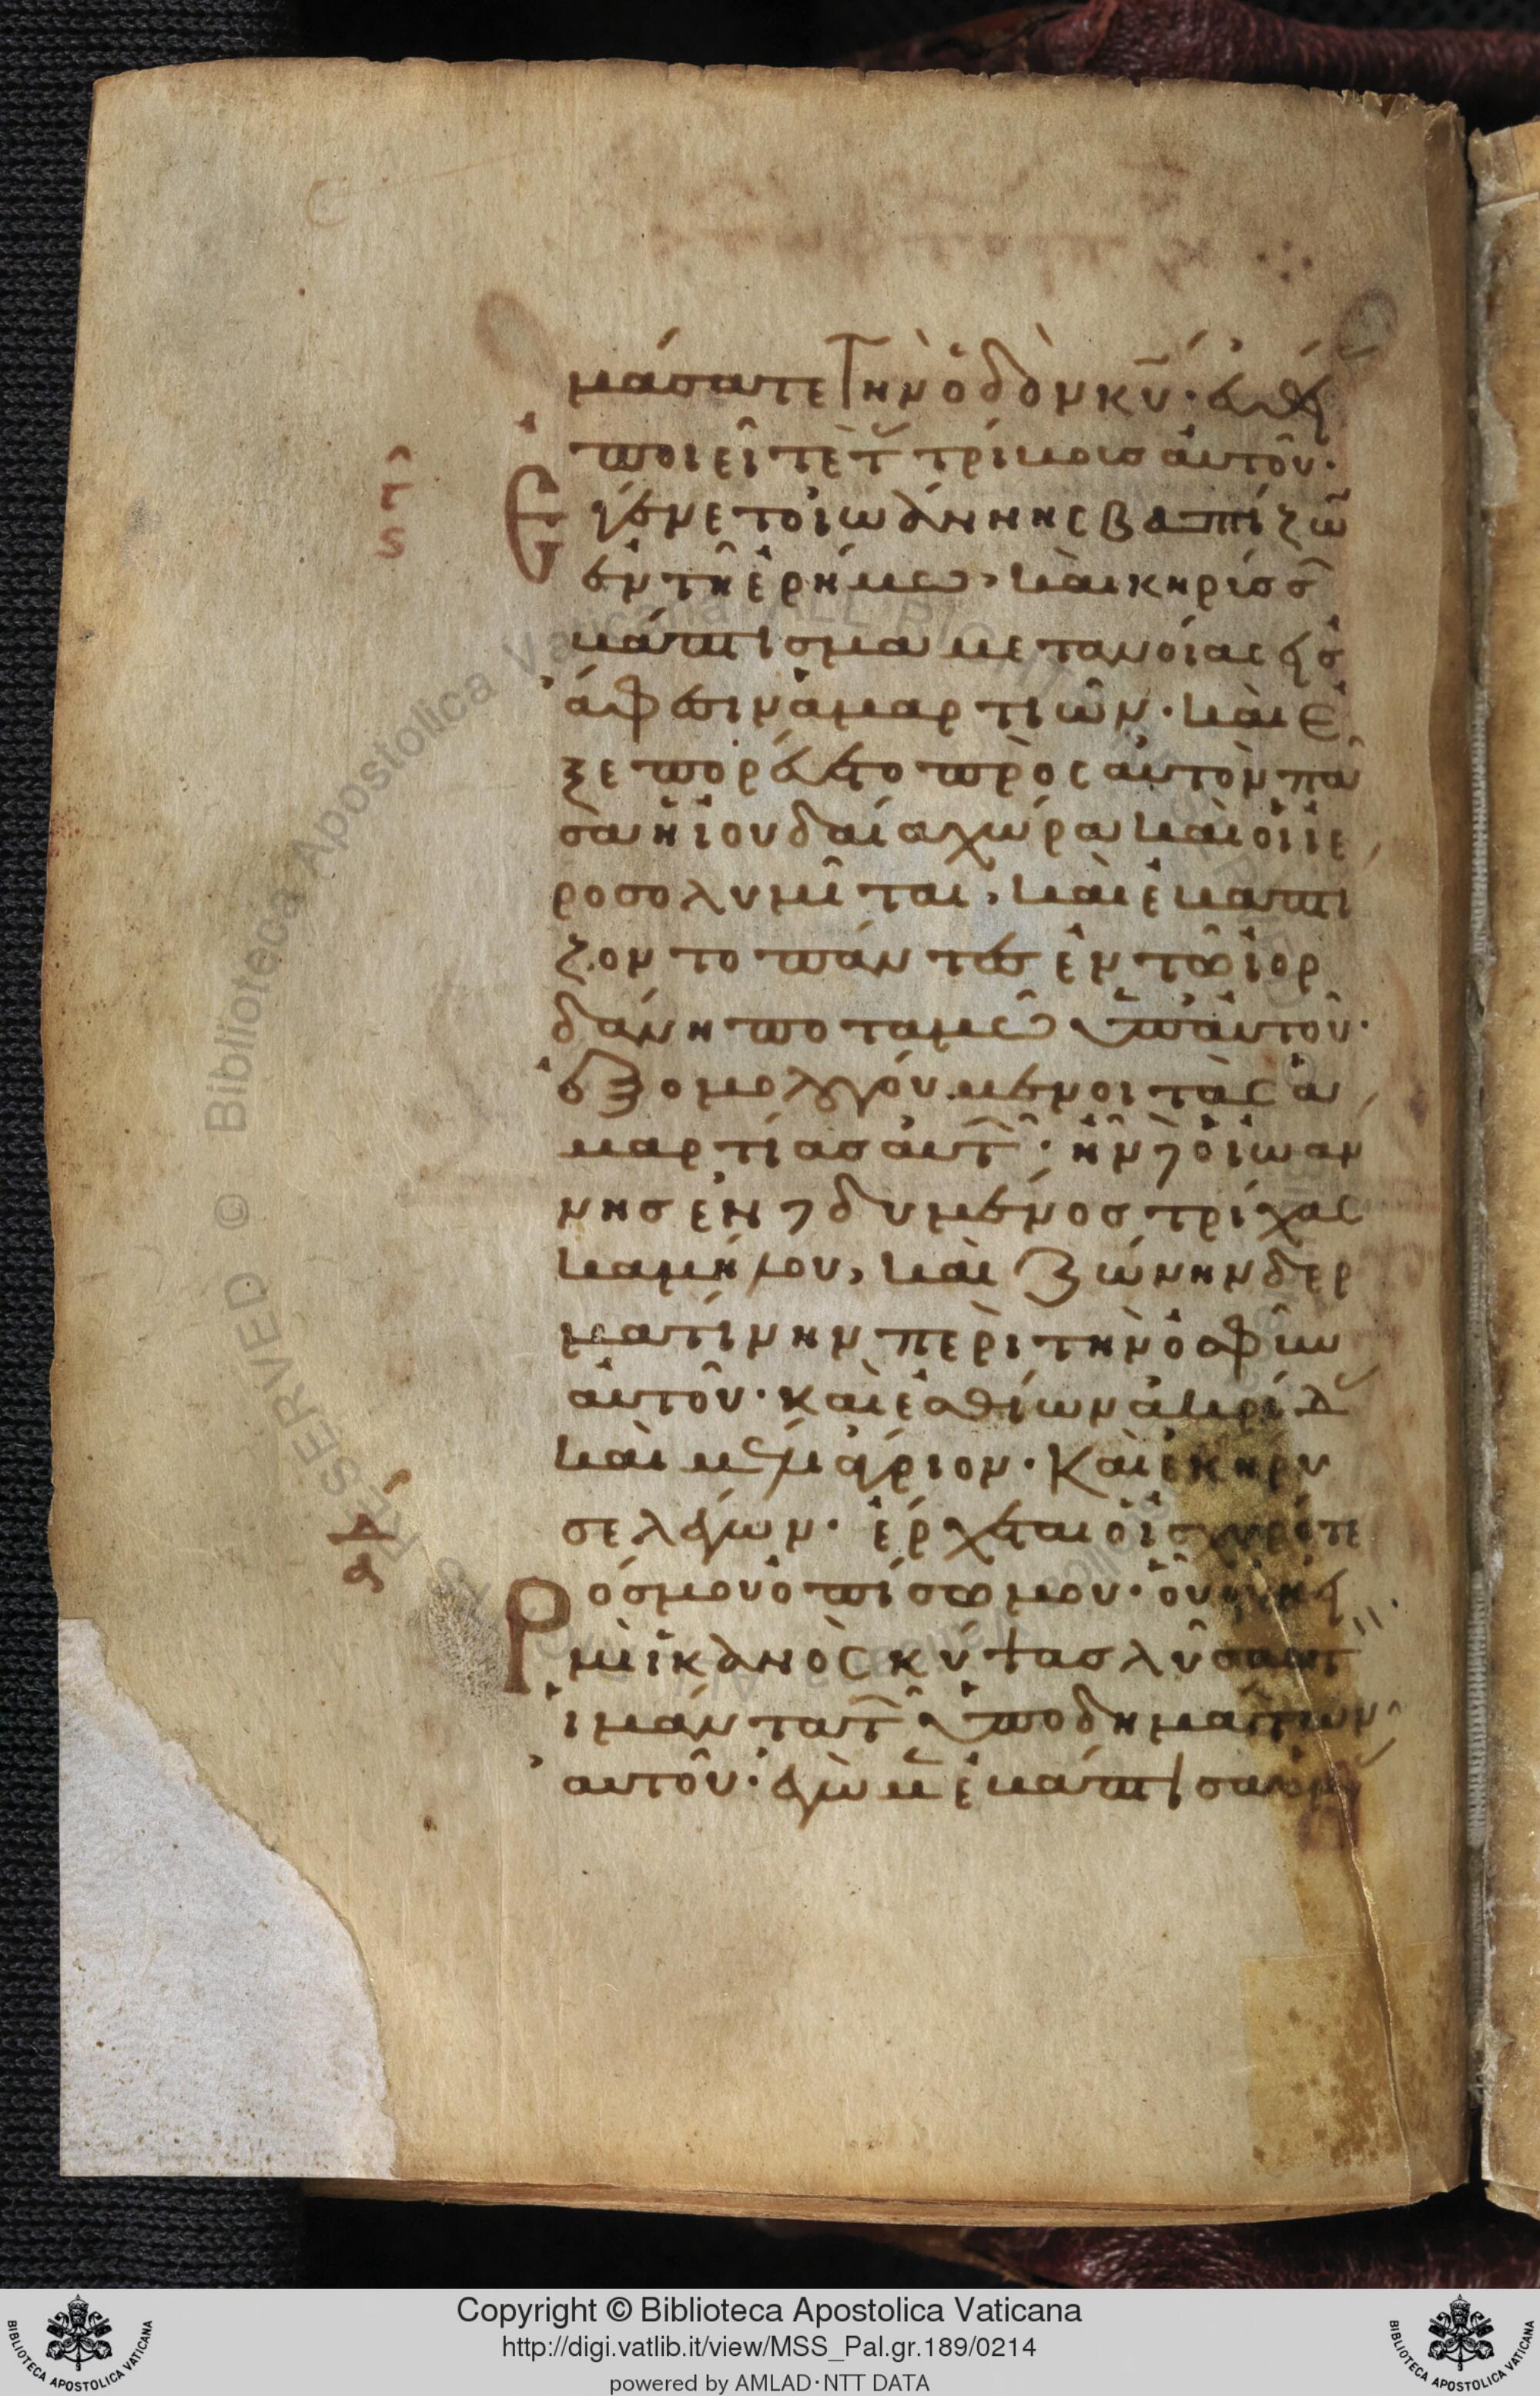 μάσατε τὴν ὁδὸν κυ̅· εὐθεί
ποιεῖτε τ τρίβους αὐτοῦ·
Ἐγένετο ἰωάννης βαπτίζω
ἐν τῆ ἐρήμω, καὶ κηρίσσ
βάπτισμα μετανοίας εἰς
ἄφεσιν ἁμαρτιῶν· καὶ ἐ
ξεπορεύετο πρὸς αὐτὸν πα
σα ἡ ἰουδαία χώρα καὶ οἱ ἱε
ροσολυμῖται, καὶ ἐβαπτι
ζοντο πάντες ἐν τῶ ἰορ
δάνη ποταμῶ ὑπ' αὐτοῦ·
ἐξομολογούμενοι τὰς ἁ
μαρτίας αὐτ· ἦν δὲ ὁ ἰωαν
νης ἐνδεδυμένος τρίχας
καμήλου, καὶ ζώνην δερ
ματίνην περὶ τὴν ὀσφὺν
αὐτοῦ· καὶ ἐσθίων ἀκρίδ
καὶ μέλι ἄγριον· Καὶ ἐκηρυ
σε λέγων· ἔρχεται ὁ ἰσχυρότε
ρός μου ὀπίσω μου· οὗ οὐκ εἰ
μὶ ἱκανὸς κύψας λῦσαι τ
ἱμάντα τ ὑποδημάτων
αὐτοῦ· ἐγὼ μ ἐβάπτισα ὑμ
ς
α
Copyright © Biblioteca Apostolica Vaticana
http://digi.vatlib.it/view/MSS_Pal.gr.189/0214
powered by AMLAD·NTT DATA
BIBLIOTECA APOSTOLICA VATICANA
BIBLIOTECA APOSTOLICA VATICANA
© Biblioteca Apostolica Vaticana ALL RIGHTS RESERVED